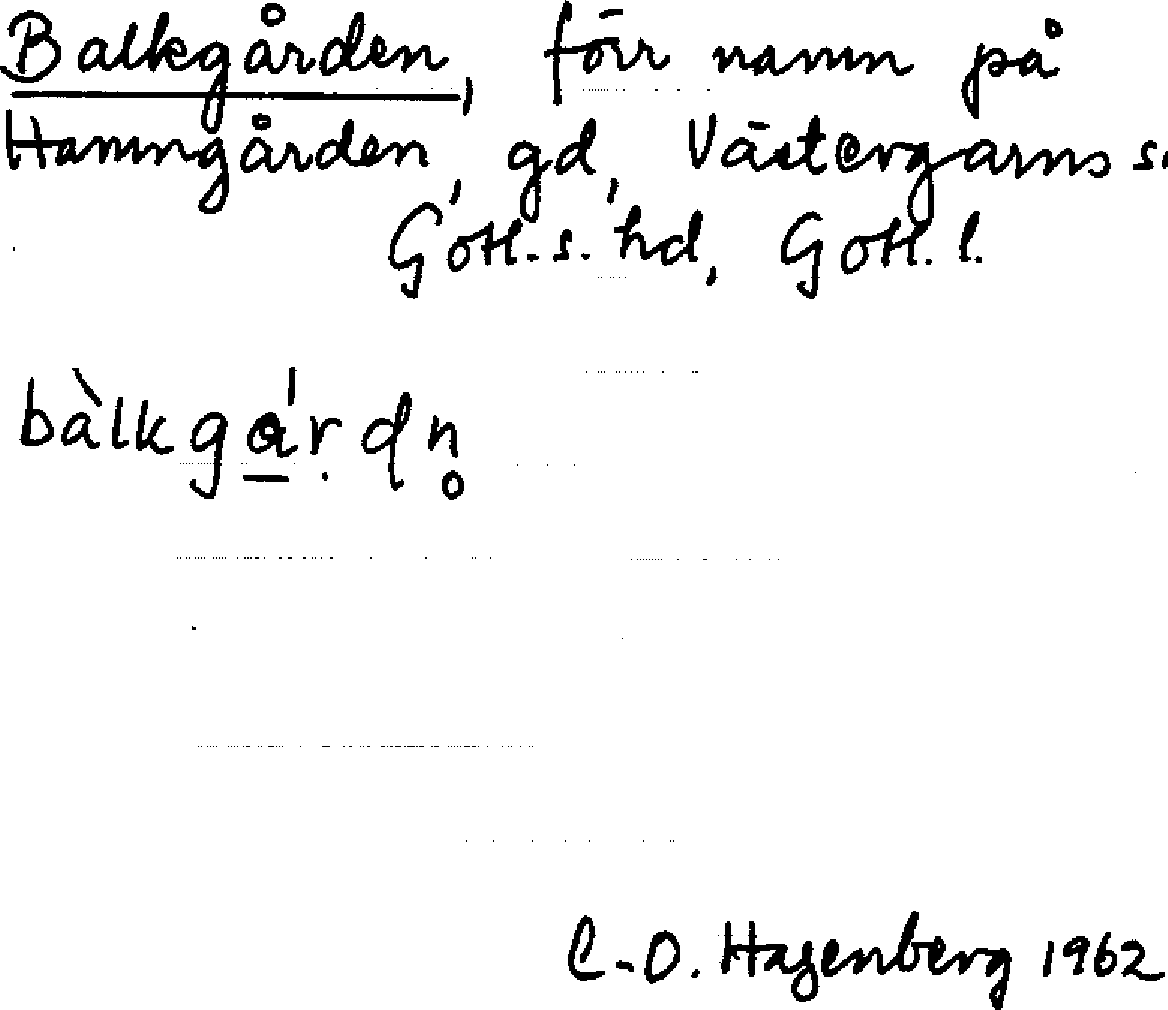 Balkgården, förr namn på
Hamngården, gd, Västergarns s.
Gotl. s. hd, Gotl. l.
bàlkgá̲ṛdn̥
C-O. Hagenberg 1962